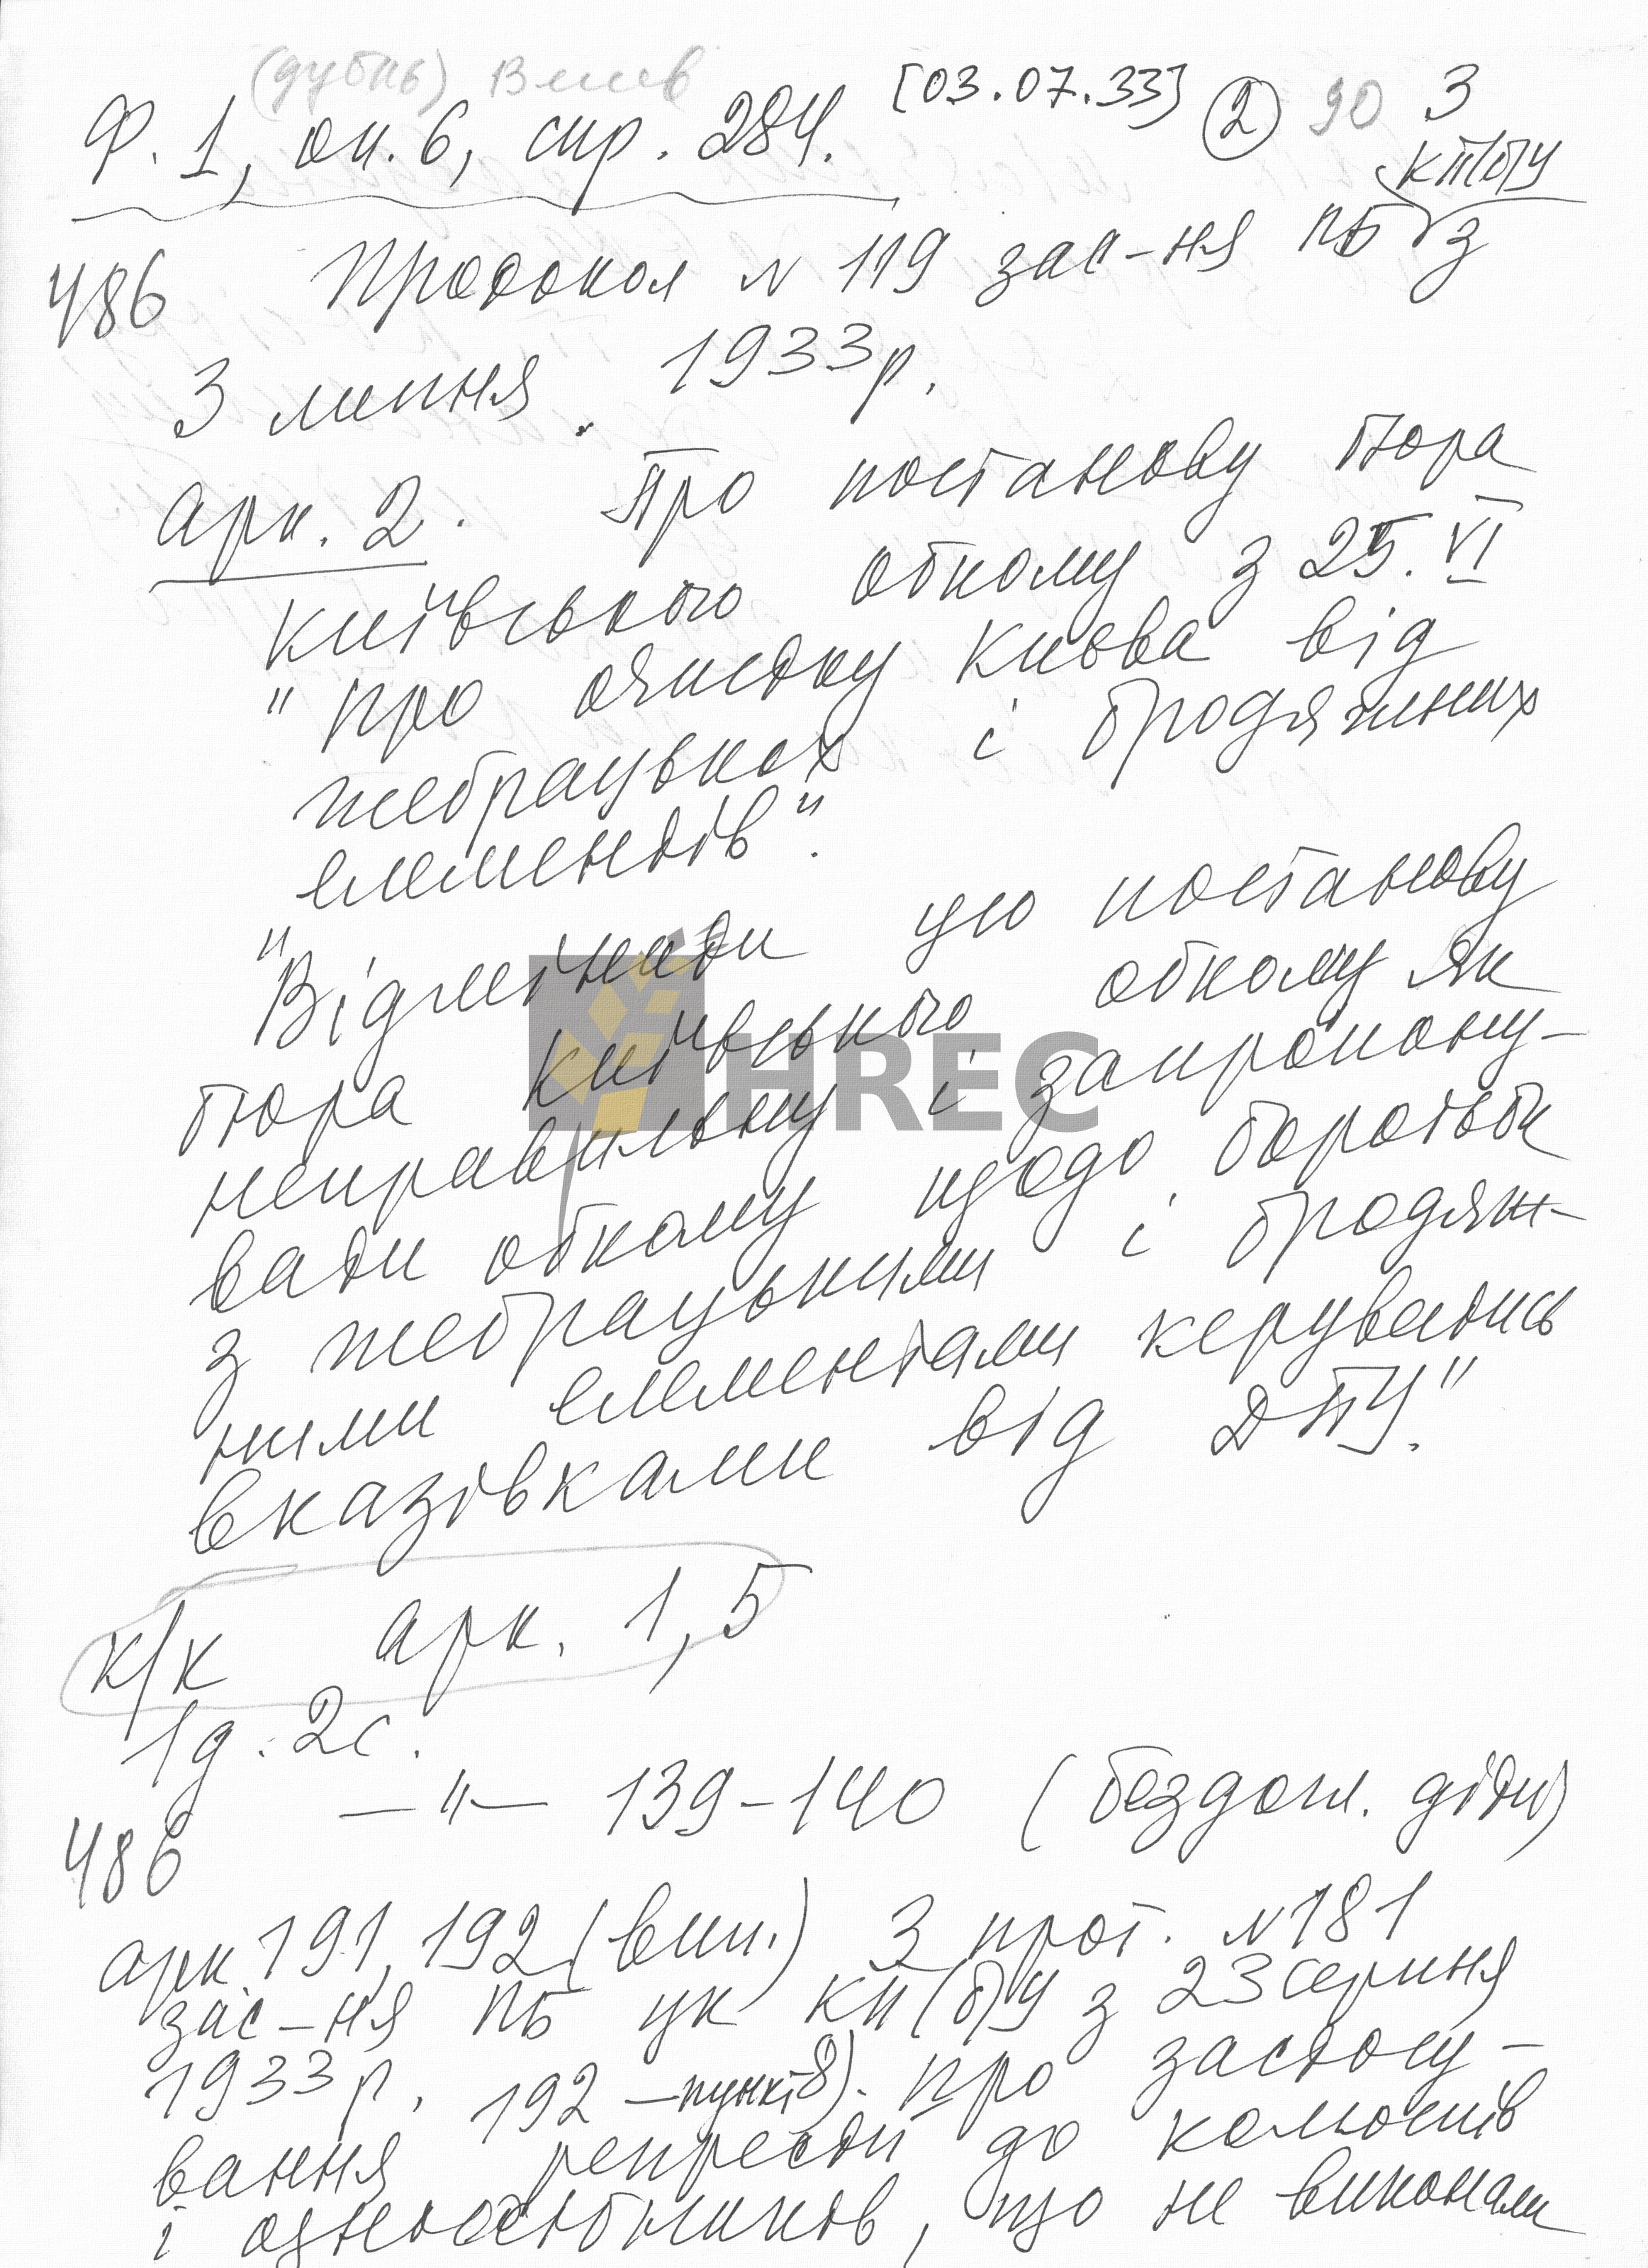 (дубль)
Ф. 1, оп. 6, спр. 284. [03.07.33] 2 90 3
КП(б)У
486 Протокол № 119 зас-ня ПБ з
3 липня 1933 р.
арк. 2. Про постанову бюра
Київського обкому з 25. VI
"Про очистку Києва від
жебрацьких і бродяжних
елементів".
"Відмінити цю постанову
бюра Київського обкому як
неправильну і запропону-
вати обкому щодо боротьби
з жебрацькими і бродяж-
ними елементами керуватись
вказівками від ДПУ."
HREC
к/к арк. 1, 5
1д. 2с.
486 — " — 139-140 (бездогл. діти)
арк 191, 192 (вип.) З прот. № 181
зас-ня ПБ ЦК КП(б)У з 23 серпня
1933 р. 192 – пункт 8). Про застосу-
вання репресій до колгоспів
і одноосібників, що не виконали